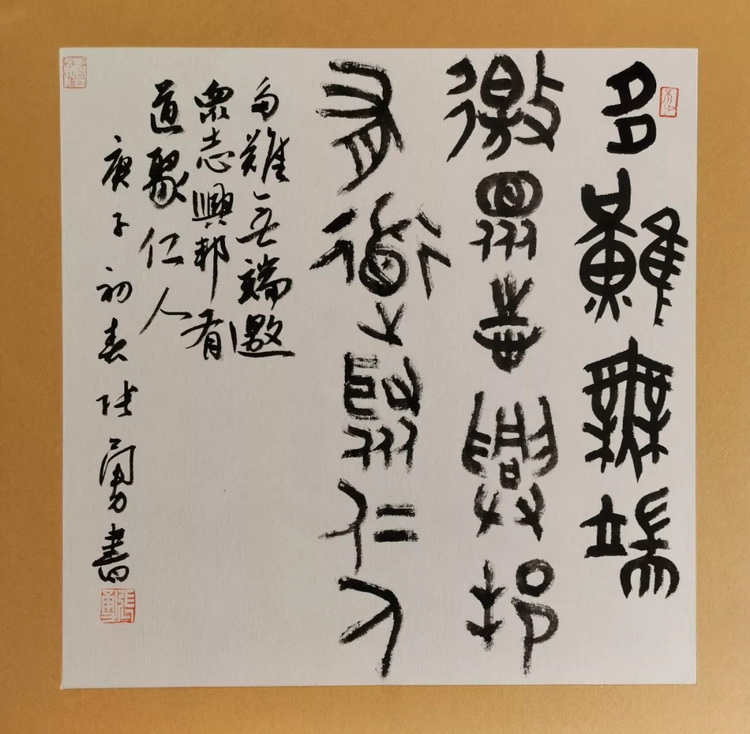 多難無端
邀眾志興邦
有道聚仁人
多難无端邀
眾志興邦有
道聚仁人
庚子初春张勇書